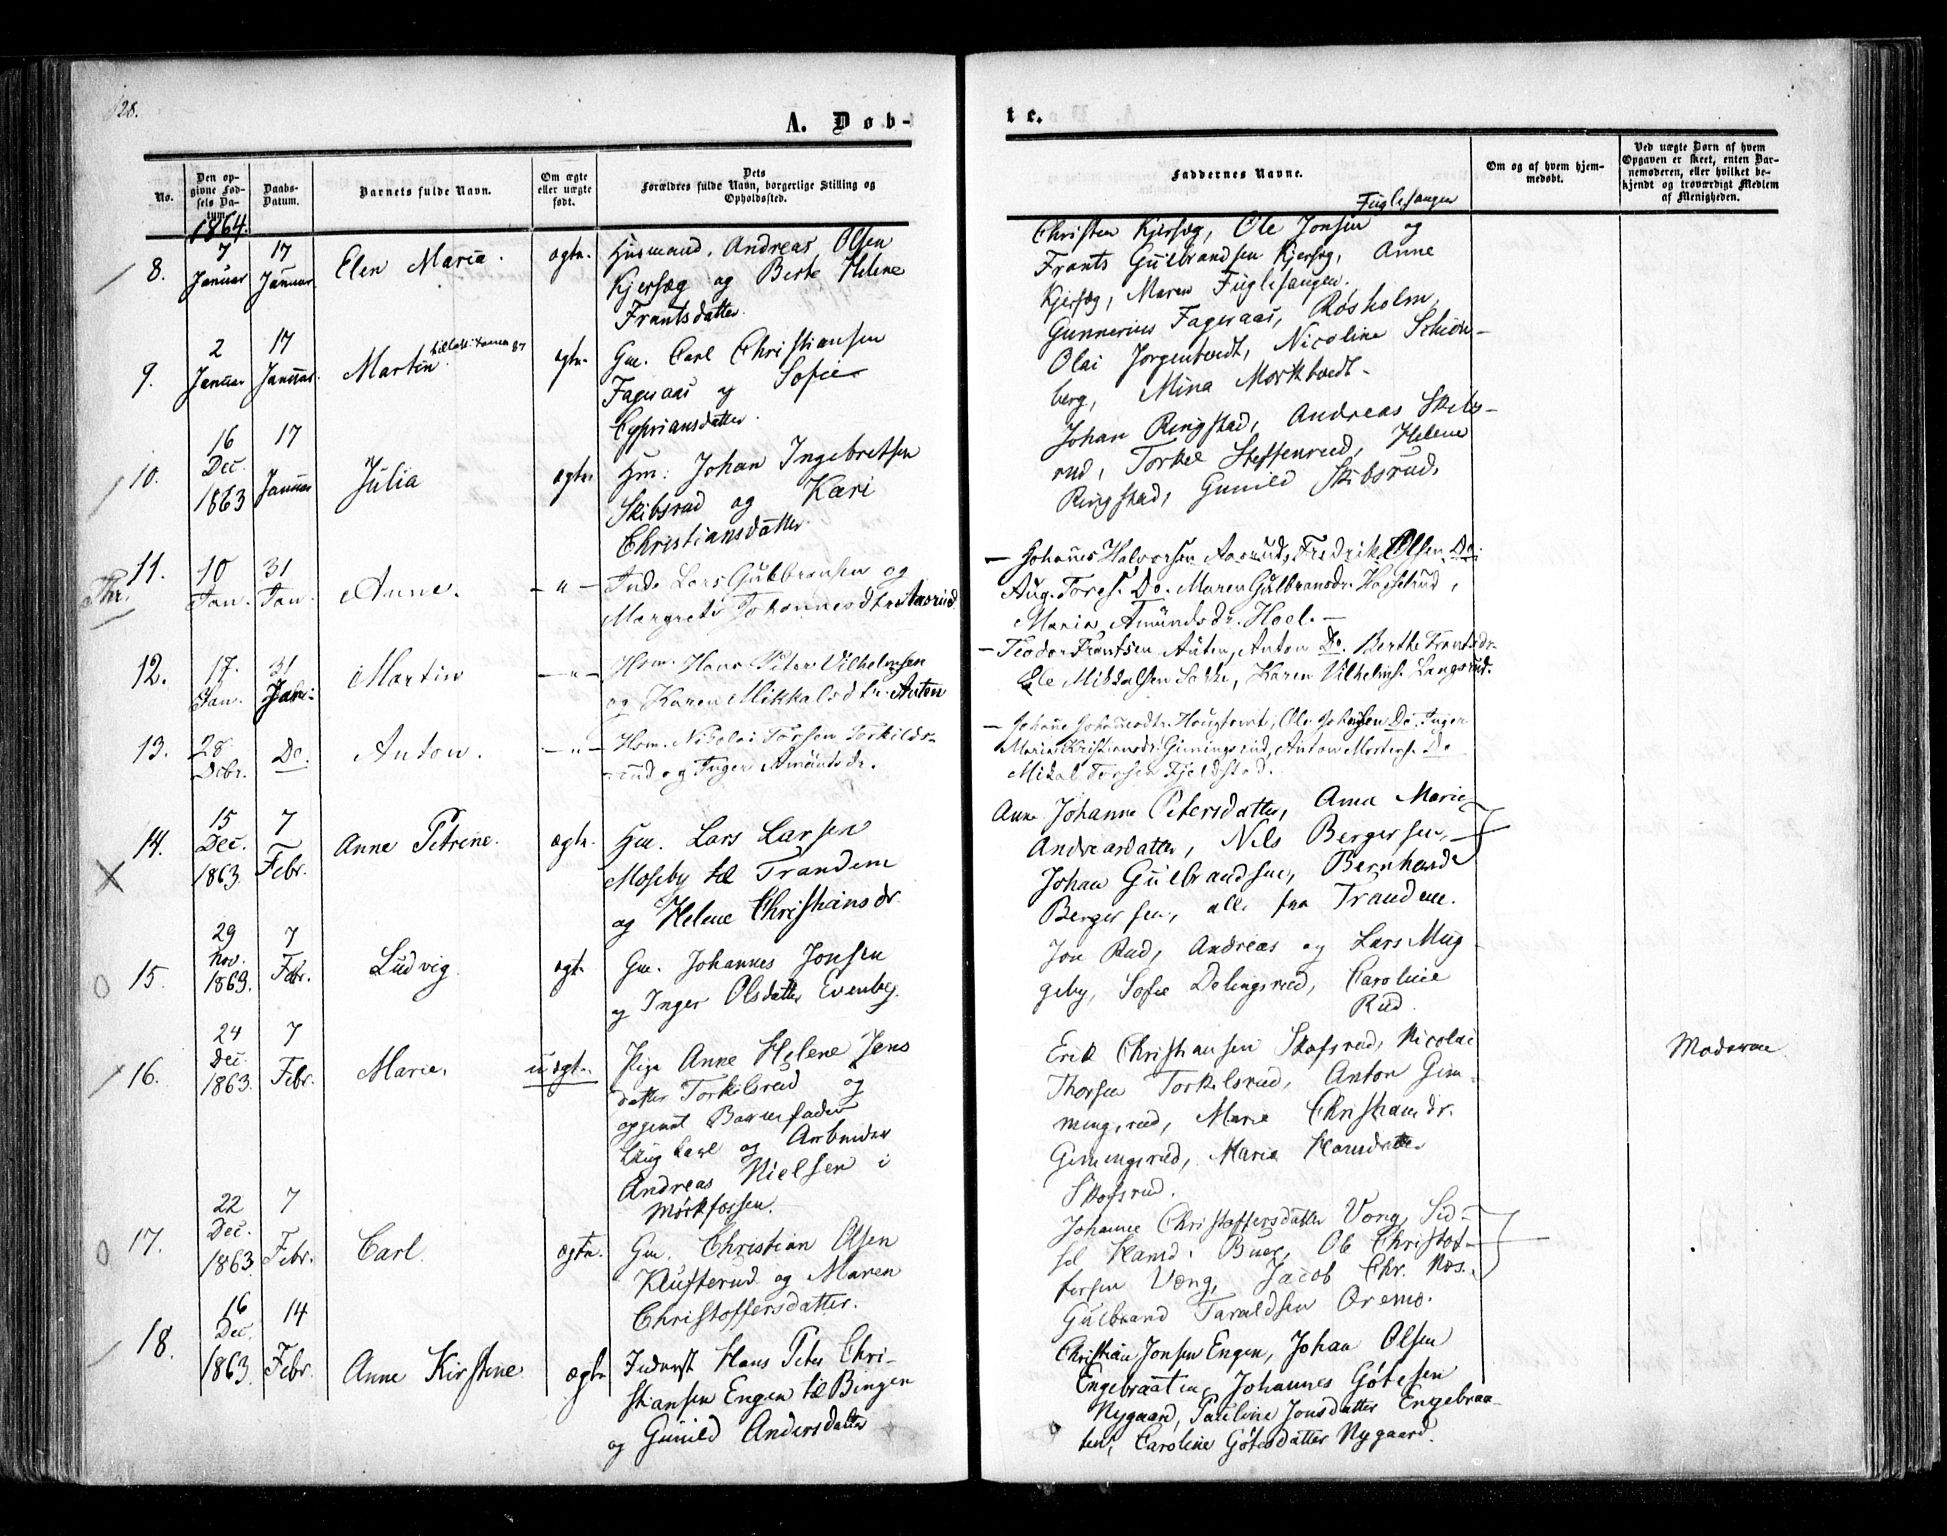 128.
A. Døb-
te.
No.
Den op-
givne Fød-
sels Da-
tum.
Daabs-
Datum.
Barnets fulde Navn.
Om ægte
eller uægte
født.
Dets
Forældres fulde Navn, borgerlige Stilling og
Opholdssted.
Faddernes Navne.
Om og af hvem hjem-
medøbt.
Ved uægte Børn af hvem
Opgaven er skeet, enten Bar-
nemoderen, eller hvilket be-
kjendt og troværdigt Medlem
af Menigheden.
1864.
8.
7
Januar
17
Januar
Elen Maria.
ægte.
Husmand. Andreas Olsen
Kjersæg og Berte Helene
Frantsdatter.
Fuglesangen
Christen Kjersæg, Ole Jonsen og
Frants Gulbrandsen Kjersæg, Anne
Kjersæg, Maren Fuglesangen.
9.
2
Januar
17
Januar.
Martin
ægte.
Gm. Carl Christiansen
Fageraas og Sofie
Cypriansdatter.
Gunnerius Fageraas, Røsholm,
Olai Jørgentvedt, Nicoline Schiøn-
berg, Mina Morktvedt.
10.
16
Dec.
1863
17
Januar
Julia
ægte.
Hm: Johan Ingebretsen
Skibsrud og Kari
Christiansdatter.
Johan Ringstad, Andreas Skibs-
rud, Torkel Steffenrud, Helene
Ringstad, Gunild Skibsrud.
11.
Thr.
10
Jan.
31
Jan.
Anne.
- " -
Inds. Lars Gulbransen og
Margrete Johannesdtr. Aasrud.
- Johannes Halvorsen Aasrud, Fredrik Olsen Do.
Aug. Tores. Do. Maren Gulbransdr. Hasselrud,
Maria Amundsdr. Hoel. -
12.
17.
Jan.
31
Jan.
Martin
- " -
Hsm. Hans Peter Vilhelmsen
og Karen Mikkalsdtr. Auten
- Teodor Frantsen Auten, Anton Do. Berthe Frantsdr.
Ole Mikkalsen Sakke, Karen Vilhelms. Langsrud.
13.
28
Debr.
Do.
Anton.
- " -
Hsm. Nikolai Torsen Torkilds-
rud og Inger Amundsdr.
- Johane Johannesdtr. Haugtvet, Ole Johansen Do. Inger
Maria Kristiansdr. Gimingsrud, Anton Mortens. Do
Mikal Torsen Fjeldstad.
14.
15
Dec.
1863.
7
Febr.
Anne Petrine.
ægte.
Hm. Lars Larsen
Moseby til Trandem
og Helene Christiansdr.
Anne Johanne Petersdatter, Anna Marie
Andreasdatter, Nils Bergersen,
Johan Gulbrandsen, Bernhard
Bergersen, alle fra Trandem.
15.
29
Nov.
1863.
7
Febr.
Ludvig
ægt.
Gm. Johannes Jonsen
og Inger Olsdatter Evenby.
Jon Rud, Andreas og Lars Mug-
geby, Sofie Delingsrud, Caroline
Rud.
16.
24
Dec.
1863.
7
Febr.
Marie.
uægt.
Pige Anne Helene Jens
datter Torkelsrud og
opgivet Barnefader
Ungkarl og Arbeider
Andreas Nielsen i
Mørkfossen.
Erik Christiansen Skofsrud, Nicolai
Thorsen Torkelsrud, Anton Gim-
mingsrud, Marie Christiansdr.
Gimingsrud, Maria Hansdatter
Skofsrud.
Moderen
17.
22
Dec.
1863
7
Febr.
Carl.
ægte.
Gm. Christian Olsen
Klufterud og Maren
Christoffersdatter.
Johanne Christoffersdatter Vong, Sid-
sel Hansd. Buer, Ole Christof-
fersen Vong, Jacob Chr. Næs.
Gulbrand Taraldsen Oremo.
18.
16
Dec.
1863
14
Febr.
Anne Kirstine
ægte
Inderst Hans Peter Chri-
stiansen Engen til Bingen
og Gunild Andersdatter
Christian Jonsen Engen, Johan Olsen
Engebraaten, Johannes Gøtesen
Nygaard, Pauline Jonsdatter Engebraa-
ten, Caroline Gøtesdatter Nygaard.